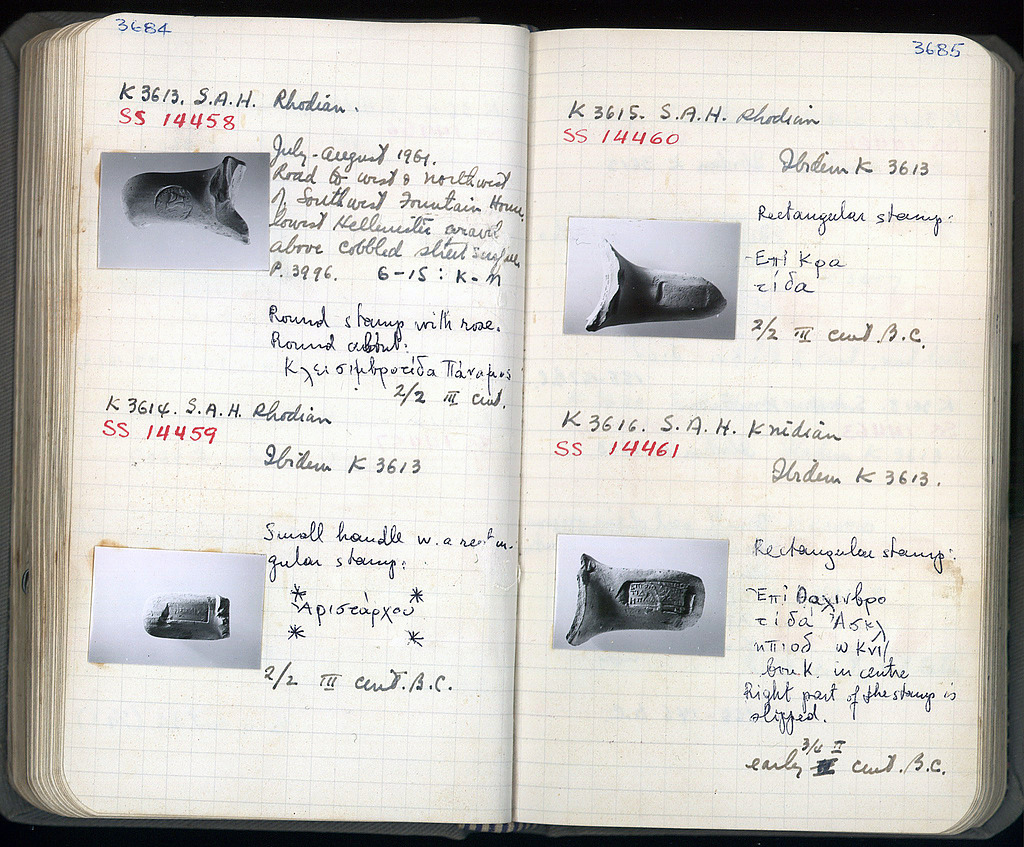 3684
K 3613. S.A.H. Rhodian.
SS 14458
July-August 1961.
Road to west & northwest
of Southwest Fountain House,
lowest Hellenistic gravel
above cobbled street surface
P. 3996. 6-15 : K-N
Round stamp with rose.
Round about:
Κλεισιμβροτίδα Πάναμος
2/2 III cent.
K 3614. S.A.H. Rhodian
SS 14459
Ibidem K 3613
Small handle w. a rectan-
gular stamp:
* *
Ἀριστάρχου
* *
2/2 III cent. B.C.
3685
K 3615. S.A.H. Rhodian
SS 14460
Ibidem K 3613
Rectangular stamp:
Ἐπὶ Κρα
τίδα
2/2 III cent. B.C.
K 3616. S.A.H. Knidian
SS 14461
Ibidem K 3613.
Rectangular stamp:
Ἐπὶ
τίδα Ἀσκλ
ηπιοδ ω Κνι/
in centre
Right part of the stamp is
slipped.
3/4 II
early cent. B.C.